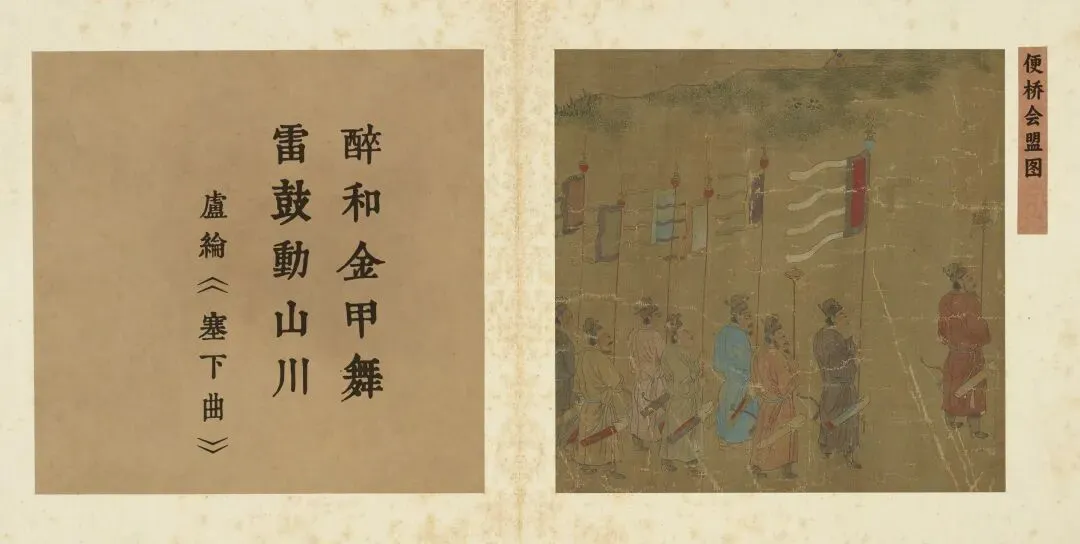 便桥会盟图
醉和金甲舞
雷鼓動山川
盧綸《塞下曲》